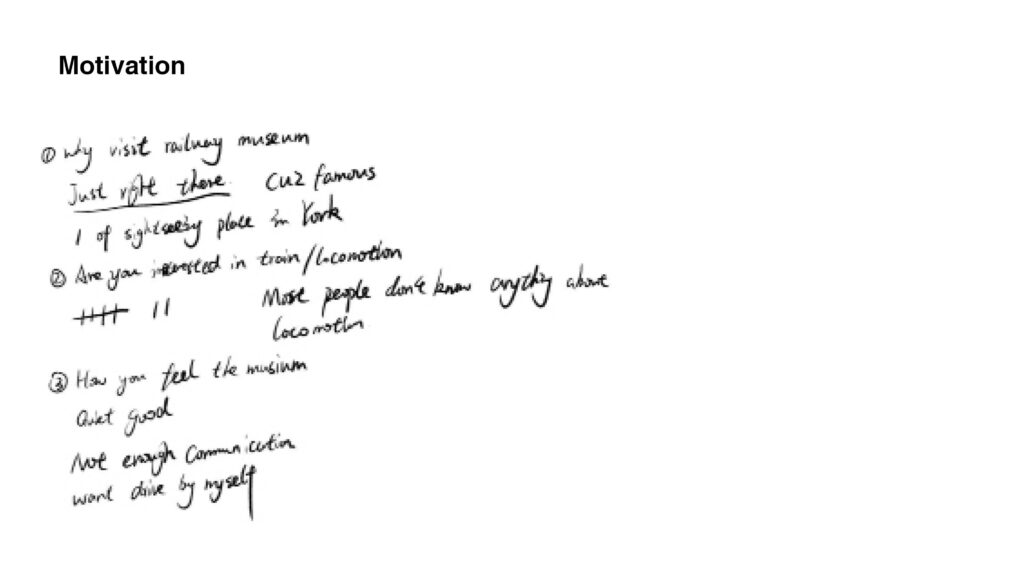 Motivation
① Why visit railway museum
Just right there. Cuz famous
1 of sightseeing place in York
② Are you interested in train/locomotion
卌 11 Most people don't know anything about
locomotion
③ How you feel the musium
Quiet good
Not enough communication
want drive by myself